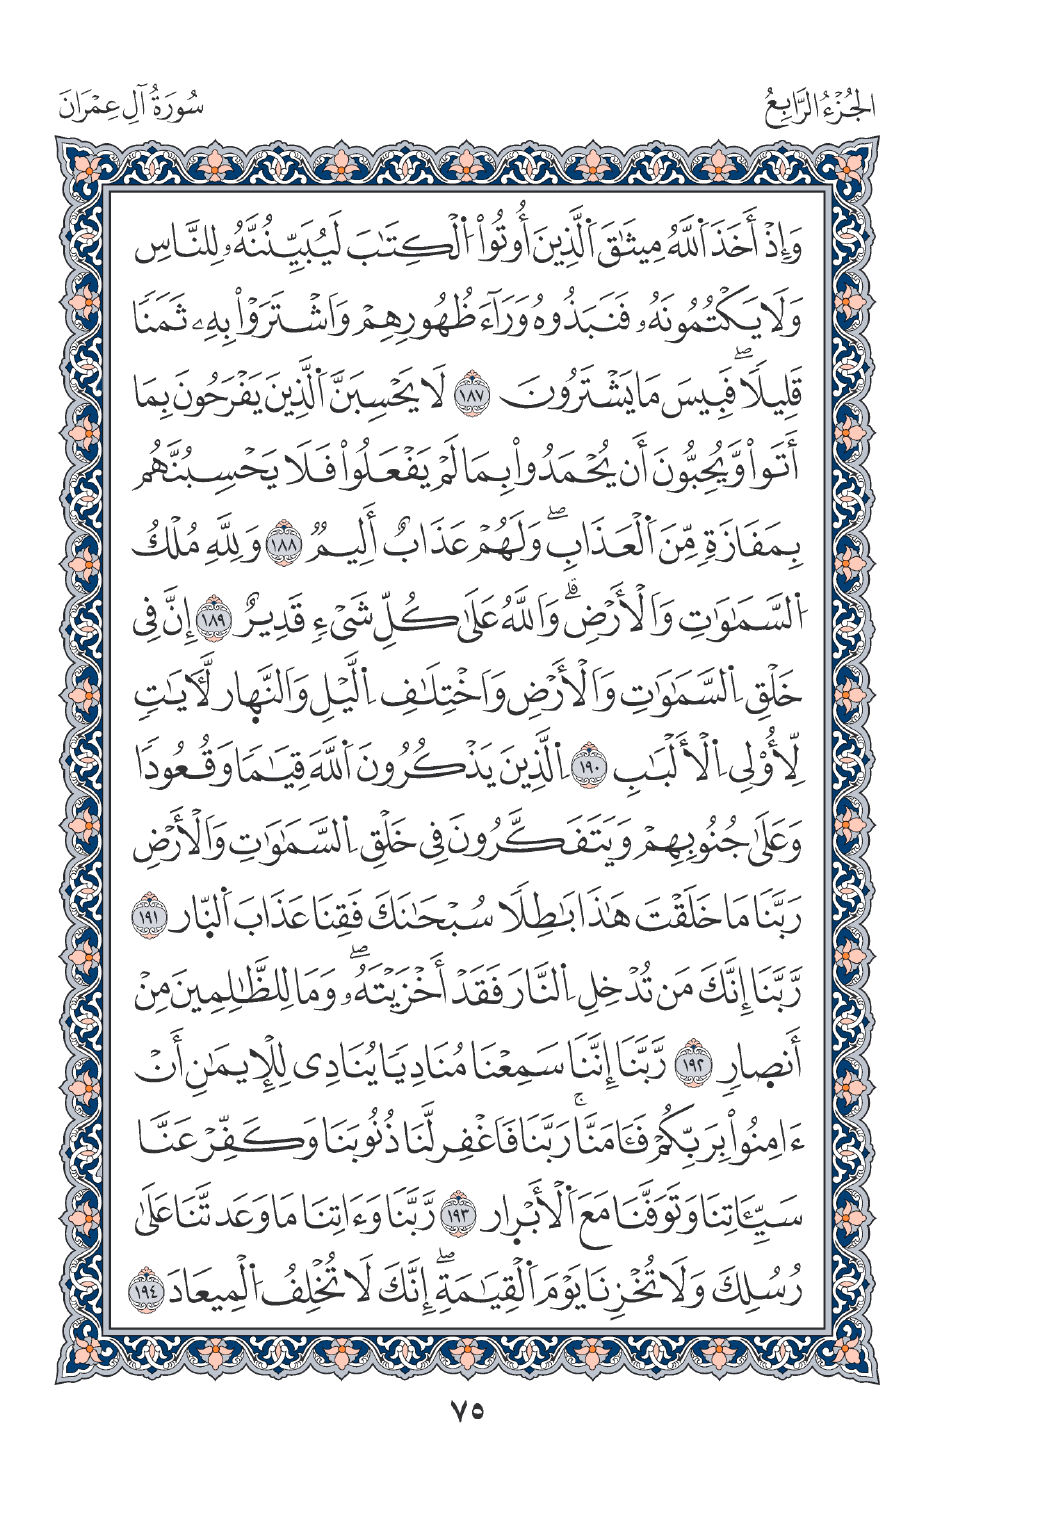 الجُزْءُ الرَّابِعُ
سُورَةُ آلِ عِمْرَانَ
وَإِذْ أَخَذَ اَ۬للَّهُ مِيثَٰقَ اَ۬لَّذِينَ أُوتُواْ اُ۬لْكِتَٰبَ لَيُبَيِّنُنَّهُۥ لِلنَّاسِ
وَلَا يَكْتُمُونَهُۥ فَنَبَذُوهُ وَرَآءَ ظُهُورِهِمْ وَاَشْتَرَوْاْ بِهِۦ ثَمَنٗا
قَلِيلٗاۖ فَبِيسَ مَا يَشْتَرُونَ ١٨٧ لَا يَحْسِبَنَّ اَ۬لَّذِينَ يَفْرَحُونَ بِمَا
أَتَواْ وَّيُحِبُّونَ أَن يُحْمَدُواْ بِمَا لَمْ يَفْعَلُواْ فَلَا يَحْسِبُنَّهُم
بِمَفَازَةٖ مِّنَ اَ۬لْعَذَابِۖ وَلَهُمْ عَذَابٌ أَلِيمٞ ١٨٨ وَلِلَّهِ مُلْكُ
اُ۬لسَّمَٰوَٰتِ وَالْأَرْضِۗ وَاَللَّهُ عَلَىٰ كُلِّ شَيْءٖ قَدِيرٌ ١٨٩ إِنَّ فِي
خَلْقِ اِ۬لسَّمَٰوَٰتِ وَالْأَرْضِ وَاَخْتِلَٰفِ اِ۬لَّيْلِ وَالنَّهٜارِ لَّأٓيَٰتٖ
لِّأُوْلِي اِ۬لْأَلْبَٰبِ ١٩٠ اِ۬لَّذِينَ يَذْكُرُونَ اَ۬للَّهَ قِيَٰمٗا وَقُعُودٗا
وَعَلَىٰ جُنُوبِهِمْ وَيَتَفَكَّرُونَ فِي خَلْقِ اِ۬لسَّمَٰوَٰتِ وَالْأَرْضِ
رَبَّنَا مَا خَلَقْتَ هَٰذَا بَٰطِلٗا سُبْحَٰنَكَ فَقِنَا عَذَابَ اَ۬لنّٜارِ ١٩١
رَّبَّنَا إِنَّكَ مَن تُدْخِلِ اِ۬لنَّارَ فَقَدْ أَخْزَيْتَهُۥۖ وَمَا لِلظَّٰلِمِينَ مِنْ
أَنصٜارٖ ١٩٢ رَّبَّنَا إِنَّنَا سَمِعْنَا مُنَادِيٗا يُنَادِي لِلْإِيمَٰنِ أَنْ
ءَامِنُواْ بِرَبِّكُمْ فَـَٔامَنَّاۚ رَبَّنَا فَاَغْفِر لَّنَا ذُنُوبَنَا وَكَفِّرْ عَنَّا
سَيِّـَٔاتِنَا وَتَوَفَّنَا مَعَ اَ۬لْأَبْرٜارِ ١٩٣ رَّبَّنَا وَءَاتِنَا مَا وَعَدتَّنَا عَلَىٰ
رُسُلِكَ وَلَا تُخْزِنَا يَوْمَ اَ۬لْقِيَٰمَةِۖ إِنَّكَ لَا تُخْلِفُ اُ۬لْمِيعَادَ ١٩٤
٧٥